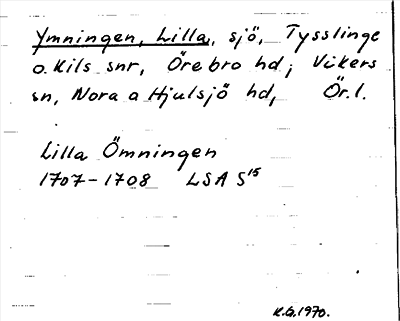 Ymningen, Lilla, sjö, Tysslinge
o. Kils snr, Örebro hd; Vikers
sn, Nora a Hjulsjö hd, Ör.l.
Lilla Ömningen
1707-1708 LSA S15
K.G.1970.